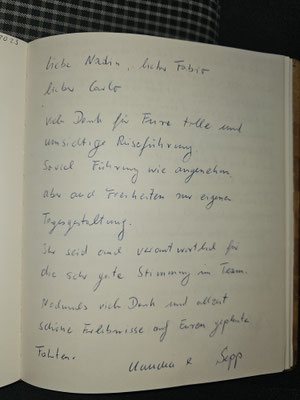 liebe Nadin, lieber Fabio
lieber Carlo
vielen Dank für Eure tolle und
umsichtige Reiseführung.
Soviel Führung wie angenehm
aber auch Freiheiten zur eigenen
Tagesgestaltung.
Ihr seid auch verantwortlich für
die sehr gute Stimmung im Team.
Nochmals vielen Dank und allzeit
schöne Erlebnisse auf Euren geplanten
Fahrten.
Claudia & Sepp